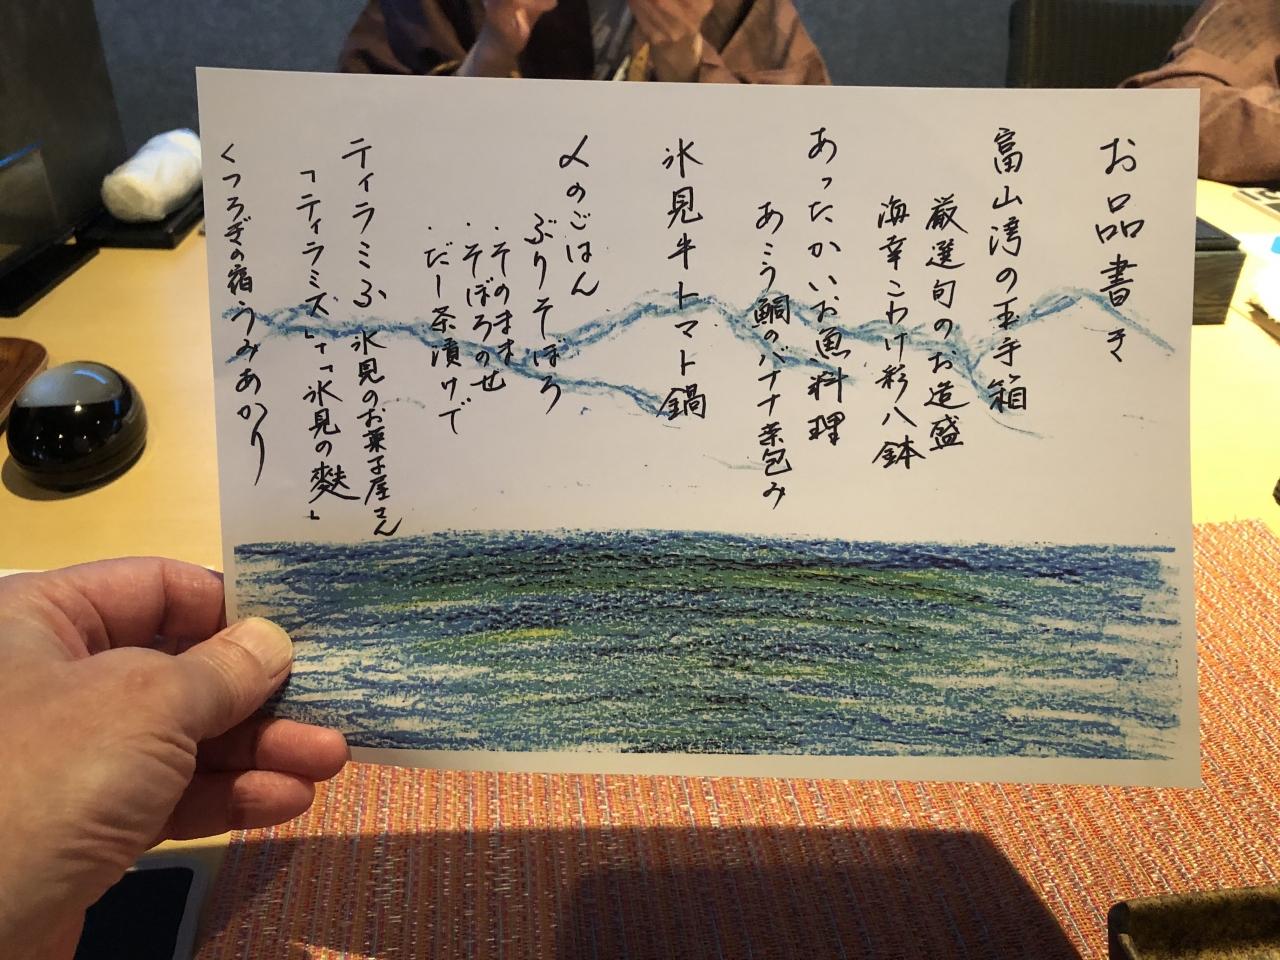 お品書き
富山湾の玉手箱
厳選旬のお造盛
海幸こわけ彩八鉢
あったかいお魚料理
あこう鯛のバナナ葉包み
氷見牛トマト鍋
〆のごはん
ぶりそぼろ
・そのまま
・そぼろのせ
・だし茶漬けで
ティラミふ 氷見のお菓子屋さん
「ティラミス」+「氷見の麩」
くつろぎの宿うみあかり